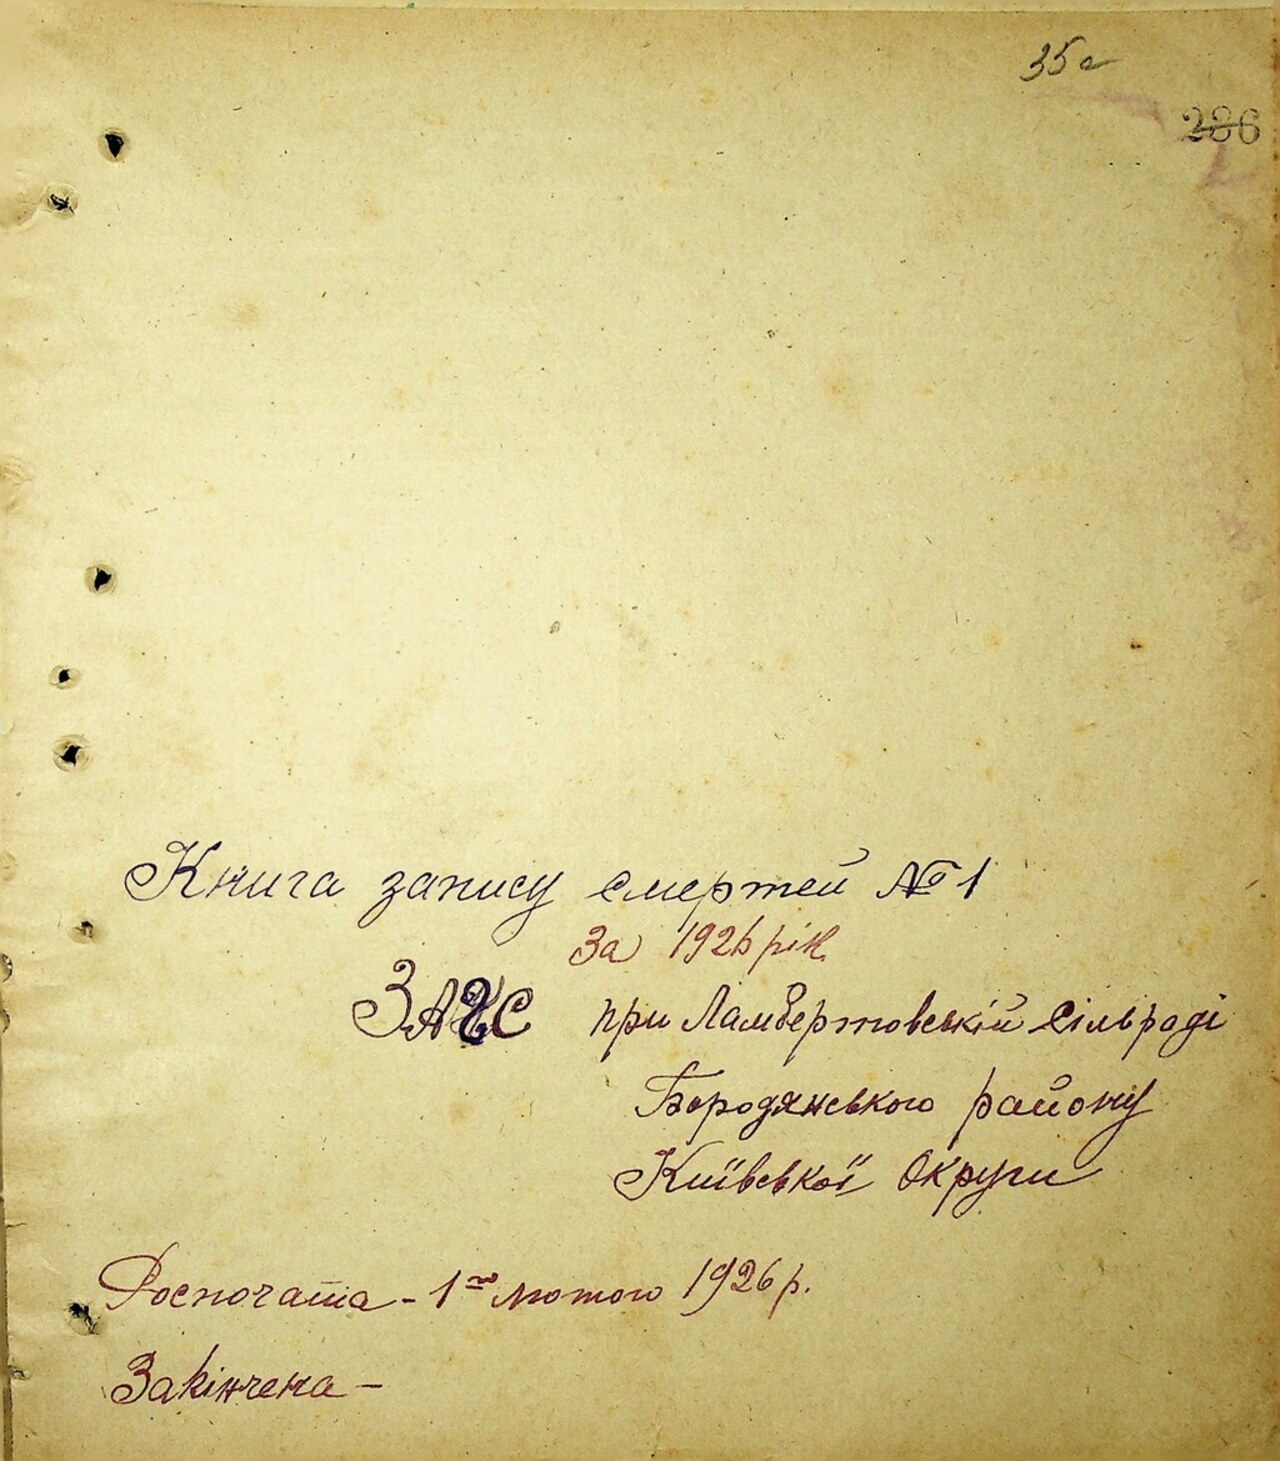 35а
286
Книга запису смертей № 1
За 1926 рік
ЗАГС при Ламбертовській сільраді
Бородянського району
Київської Округи
Роспочата - 1го лютого 1926 р.
Закінчена -